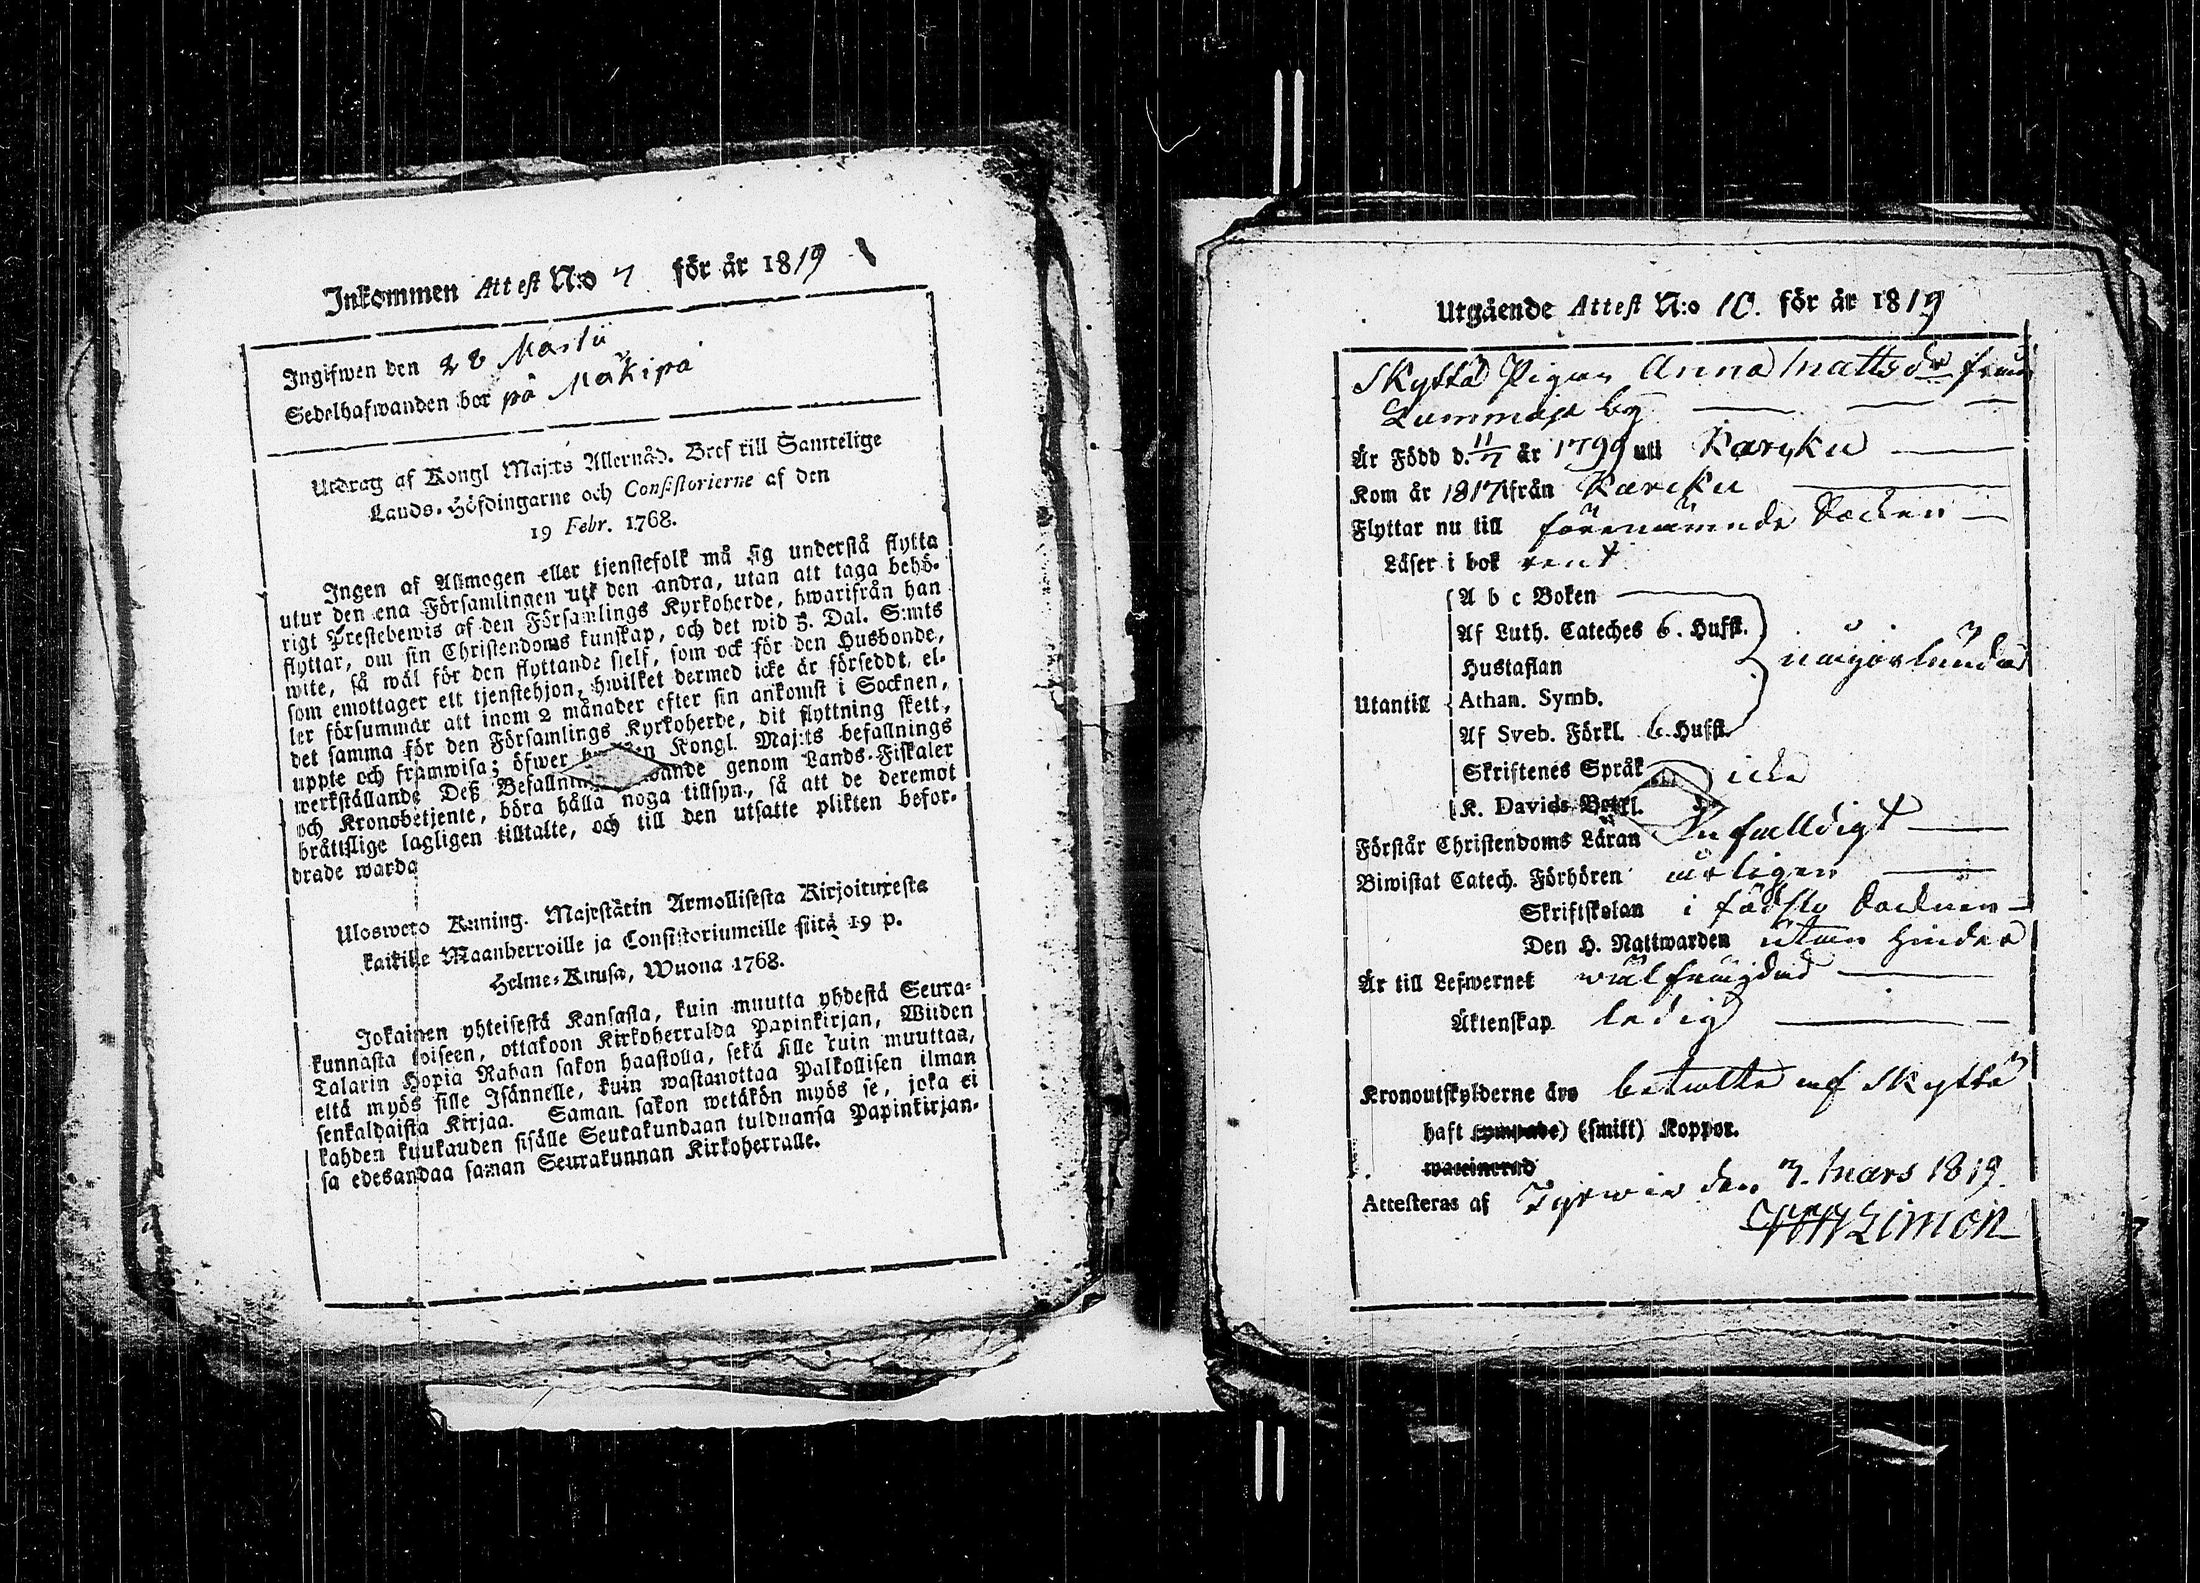 Inkommen Attest N:o 7 för år 1819
Ingifwen den 28 Martii
Sedelhafwanden bor på Mäkipä
Utdrag af Kongl Maj:ts Allernåd. Bref till Samtelige
Lands-Höfdingarne och Consistorierne af den
19 Febr. 1768.
Ingen af Allmogen eller tjenstefolk må sig understå flytta
utur den ena Församlingen uti den andra, utan att taga behö-
rigt Prestebewis af den Församlings Kyrkoherde, hwarifrån han
flyttar, om sin Christendoms kunskap, och det wid 3. Dal. S:mts
wite, så wäl för den flyttande sielf, som ock för den Husbonde,
som emottager ett tjenstehjon, hwilket dermed icke är försedt, el-
ler försummar att inom 2 månader efter sin ankomst i Socknen,
det samma för den Församlings Kyrkoherde, dit flyttning skett,
uppte och framwisa; öfwer Kongl. Maj:ts befallnings
werkställande Deß genom Lands-Fiskaler
och Kronobetjente, böra hålla noga tillsyn, så att de deremot
bråttslige lagligen tilltalte, och till den utsatte plikten befor-
drade warda
Uloswero Kuning. Majestätin Armollisesta Kirjoituxesta
kaikille Maanherroille ja Consistoriumeille siitä 19 p.
Helme-Kuusa, Wuona 1768.
Jokainen yhteisestä Kansasta, kuin muutta yhdestä Seura-
kunnasta toiseen, ottakoon Kirkoherralda Papinkirjan, Wiiden
Talarin Hopia Rahan sakon haastolla, sekä sille kuin muuttaa,
että myös sille Isännelle, kuin wastanottaa Palkollisen ilman
senkaldaista Kirjaa. Saman sakon wetäkön myös se, joka ei
kahden kuukauden sisälle Seurakundaan tulduansa Papinkirjan-
sa edesandaa saman Seurakunnan Kirkoherralle.
Utgående Attest N:o 10. för år 1819
Skyttä Pigan Anna Mattsdr från
Lummaja by
Är Född d. 11/7 år 1799 uti Karcku
Kom år 1817 ifrån Karcku
Flyttar nu till förenämnde Socken
Läser i bok rent
A b c Boken
Af Luth. Cateches 6. Hufst.
Hustaflan
någorlunda
Utantill Athan. Symb.
Af Sveb. Förkl. 6. Hufst.
Skriftenes Språk icke
K. Davids Botpl.
Förstår Christendoms Läran Enfalldigt
Biwistat Catech. Förhören årligen
Skriftskolan i födslo Socknen
Den H. Nattwarden utan hinder
Är till Lefwernet wälfrägdad
Äktenskap ledig
Kronoutskylderne äro betalte af Skyttä
haft (ympade) (smitt) Koppor.
waccinerad
Attesteras af Tyrwis den 7. Mars 1819.
Limon